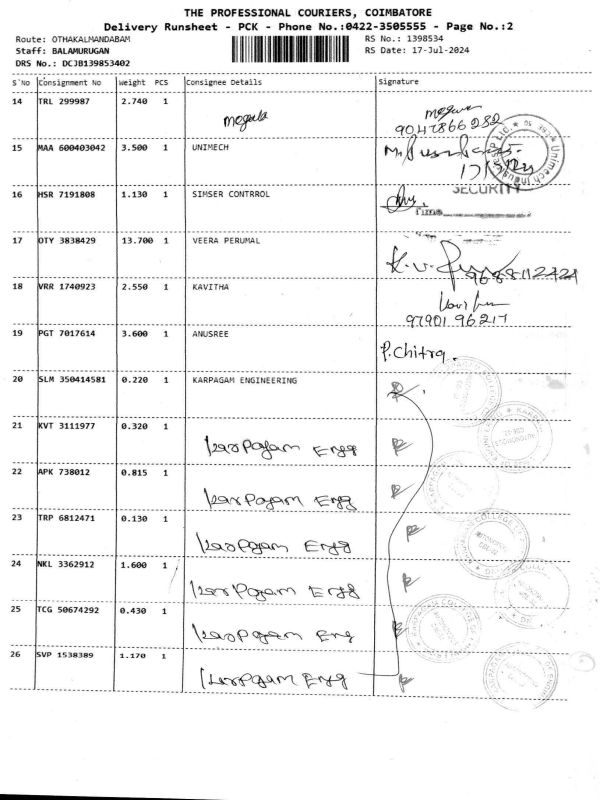 THE PROFESSIONAL COURIERS, COIMBATORE
Delivery Runsheet - PCK - Phone No.:0422-3505555 - Page No.:2
Route: OTHAKALMANDABAM RS No.: 1398534
Staff: BALAMURUGAN RS Date: 17-Jul-2024
DRS No.: DCJB139853402
S'No Consignment No Weight PCS Consignee Details Signature
14 TRL 299987 2.740 1
9047866282
15 MAA 600403042 3.500 1 UNIMECH
16 HSR 7191808 1.130 1 SIMSER CONTRROL
SECURITY
Time
17 OTY 3838429 13.700 1 VEERA PERUMAL
18 VRR 1740923 2.550 1 KAVITHA
97901 96217
19 PGT 7017614 3.600 1 ANUSREE P.Chitra.
20 SLM 350414581 0.220 1 KARPAGAM ENGINEERING
21 KVT 3111977 0.320 1 Karpagam Engg
22 APK 738012 0.815 1 Karpagam Engg
23 TRP 6812471 0.130 1 Karpagam Engg
24 NKL 3362912 1.600 1 Karpagam Engg
25 TCG 50674292 0.430 1 Karpagam Eng
26 SVP 1538389 1.170 1 Karpagam Engg